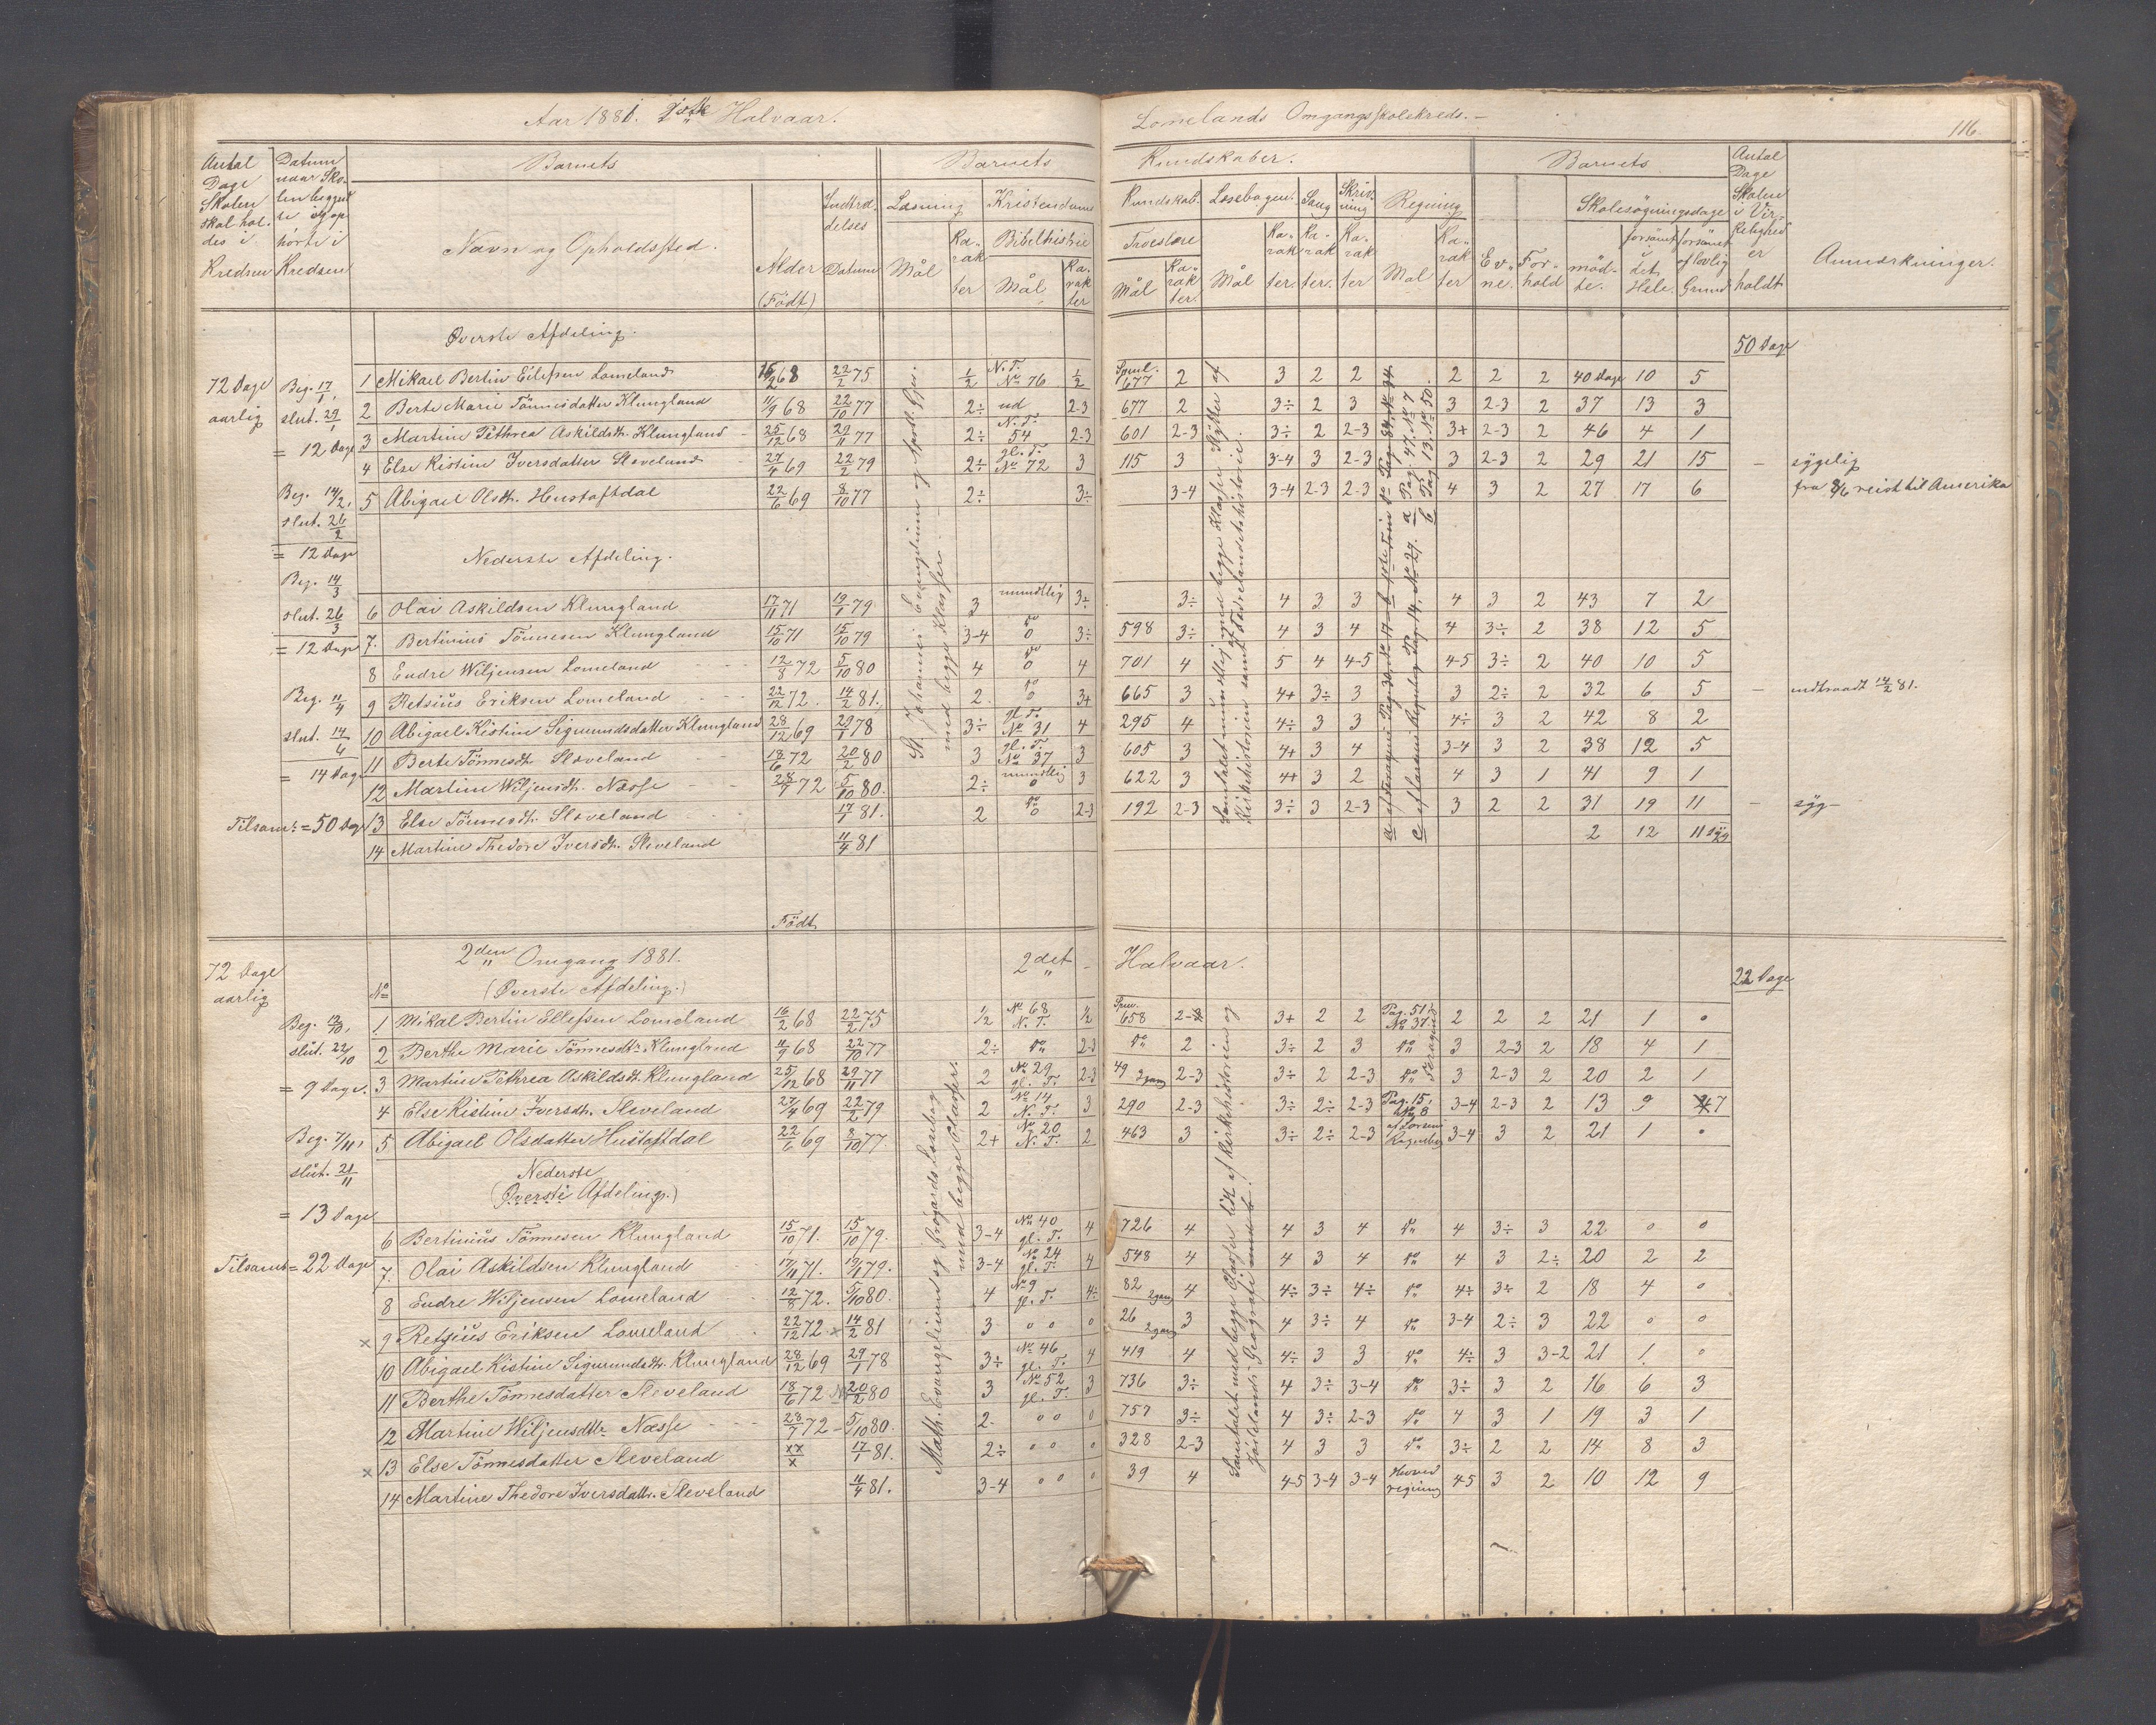 Aar 1881. 1ste Halvaar.
Lomelands Omgangsskolekreds.
116.
Antal Dage Skolen skal holdes i Kredsen
Datum naar Skolen begyndte og ophørte i Kredsen
Barnets
Navn og Opholdssted.
Alder (Født)
Indtrædelses Datum
Barnets Kundskaber.
Læsning
Mål
Karakter
Kristendoms Kundskab.
Bibelhistorie
Mål
Karakter
Troeslære
Mål
Karakter.
Læsebogen.
Mål
Karakter.
Sang
Karakter.
Skrivning
Karakter
Regning
Mål
Karakter
Barnets
Evne.
Forhold
Skolesøgningsdage
mødte.
forsømt det Hele.
forsømt af lovlig Grund
Antal Dage Skolen i Virkelighed er holdt
Anmærkninger.
Øverste Afdeling.
50 Dage
72 Dage aarlig
Beg. 17/1, slut. 29/1 = 12 Dage
Beg. 14/2, slut. 26/2 = 12 Dage
Beg. 14/3 slut. 26/3 = 12 Dage
Beg. 11/4 slut. 14/4 = 14 Dage
Tilsam. = 50 Dage
St. Johannes Evangelium og Apostl. Gjer. med begge Klasser.
1 Mikael Bertin Ellefsen Lomeland 16/2 68 22/2 75 1/2 N. T. No 76 1/2 Spml. 677 2 3 2 2 2 2 2 40 Dage 10 5
2 Berte Marie Tönnesdatter Klungland 11/9 68 22/10 77 2÷ ud 2-3 677 2 3÷ 2 3 3 2-3 2 37 13 3
3 Martine Pethrea Askildsdt. Klungland 25/12 68 29/11 77 2÷ N. T. 54 2-3 601 2-3 3÷ 2 2-3 3+ 2-3 2 46 4 1
4 Else Kistine Iversdatter Sleveland 27/4 69 22/2 79 2÷ gl. T. No 72 3 115 3 3-4 3 2-3 3 2-3 2 29 21 15 – sygelig
5 Abigael Olsdt. Hustoftdal 22/6 69 8/10 77 2÷ 3÷ 3-4 3-4 2-3 2-3 4 3 2 27 17 6 fra 8/6 reist til Amerika
Nederste Afdeling.
6 Olai Askildsen Klungland 17/11 71 19/1 79 3 mundtlig 3÷ 3÷ 4 3 3 4 3 2 43 7 2
7. Bertinius Tönnesen Klungland 15/10 71 15/10 79 3-4 do 0 3÷ 598 3÷ 4 3 4 4 3÷ 2 38 12 5
8 Endre Wiljensen Lomeland 12/8 72 5/10 80 4 do 0 4 701 4 5 4 4-5 4-5 3÷ 2 40 10 5
9 Retsius Eriksen Lomeland 22/12 72. 14/2 81. 2. do 0 3+ 665 3 4+ 3÷ 3 3 2÷ 2 32 6 5 – indtraadt 14/2 81.
10 Abigael Kistine Sigmundsdatter Klungland 28/12 69 29/1 78 3÷ gl. T. No 31 4 295 4 4÷ 3 3 4÷ 3 2 42 8 2
11 Berte Tönnesdt. Sleveland 18/6 72 20/2 80 3 gl. T. No 37 3 605 3 4+ 3 4 3-4 3 2 38 12 5
12 Martine Wiljensdt. Næsse 28/7 72 5/10 80. 2÷ mundtlig 0 3 622 3 4+ 3 2 4 3 1 41 9 1
13 Else Tönnesdt. Sleveland 17/1 81. 2 do 0 2-3 192 2-3 3÷ 3 2-3 3 2 2 31 19 11 – syg –
14 Martine Thedore Iversdt. Sleveland 11/4 81 2 12 11 syg
Født
72 Dage aarlig
2den Omgang 1881.
2det Halvaar.
(Øverste Afdeling.)
22 Dage
No
Beg. 12/10, slut. 22/10 = 9 Dage.
Beg. 7/11, slut. 21/11 = 13 Dage
Tilsamt = 22 Dage
1 Mikal Bertin Ellefsen Lomeland 16/2 68 22/2 75 1/2 No 68 N. T. 1/2 658 3+ 2 2 Pag. 51, No 37. 2 2 2 21 1 0
2 Berthe Marie Tönnesdtr. Klungland 11/9 68 22/10 77 2÷ do 2-3 do 2 3÷ 2 3 do 3 2-3 2 18 4 1
3 Martine Pethrea Askildsdt. Klungland 25/12 68 29/11 77 2 No 29 gl. T. 2-3 49 2 gang 2-3 3÷ 2 2-3 do 3 2-3 2 20 2 1
4 Else Kistine Iversdt. Sleveland 27/4 69 22/2 79 2 No 14 N. T. 3 290 2-3 3÷ 2÷ 2-3 Pag. 15, No 8 3-4 2-3 2 13 9 7
5 Abigael Olsdatter Hustoftdal 22/6 69 8/10 77. 2+ No 20 N. T. 2 463 3 3÷ 2÷ 2-3 3-4 3 2 21 1 0
Nederste
(Øverste Afdeling.)
6 Bertinius Tönnesen Klungland 15/10 71. 15/10 79. 3-4 No 40 gl. T. 4 726 4 4 3 4 do 4 3÷ 3 22 0 0
7. Olai Askildsen Klungland 17/11 71. 19/1 79. 3-4 No 24 gl. T. 4 548 4 4 3 4 do 4 3 2÷ 20 2 2
8 Endre Wiljensen Lomeland 12/8 72. 5/10 80. 4 No 9 gl. T. 4÷ 82 2 gang 4 4÷ 3÷ 4÷ do 4÷ 3÷ 2 18 4 0
× 9 Retsius Eriksen Lomeland 22/12 72 × 14/2 81 3 0 0 0 26 2 gang 3 4 3÷ 4 do 3-4 2÷ 3 22 0 0
10 Abigael Kistine Sigmundsdt. Klungland 28/12 69 29/1 78 3÷ No 46 gl. T. 4 419 4 4÷ 3 3 do 4÷ 3 3-2 21 1 0
11 Berthe Tönnesdatter Sleveland 18/6 72 20/2 80 3 No 52 gl. T. 3 736 3÷ 4 3÷ 3-4 do 3÷ 3 2 16 6 3
12 Martine Wiljensdtr. Næsse 28/7 72 – 5/10 80. 2. 0 0 0 757 3÷ 4 3÷ 2-3 do 4 3 1 19 3 1
× 13 Else Tönnesdatter Sleveland xx/x 17/1 81. 2÷ 0 0 0 328 2-3 4 3 3 do 3÷ 2 2 14 8 3
14 Martine Thedore Iversdattr. Sleveland 11/4 81. 3-4 0 0 0 39 4 4-5 3-4 3-4 Hovedregning 4-5 3 2 10 12 9